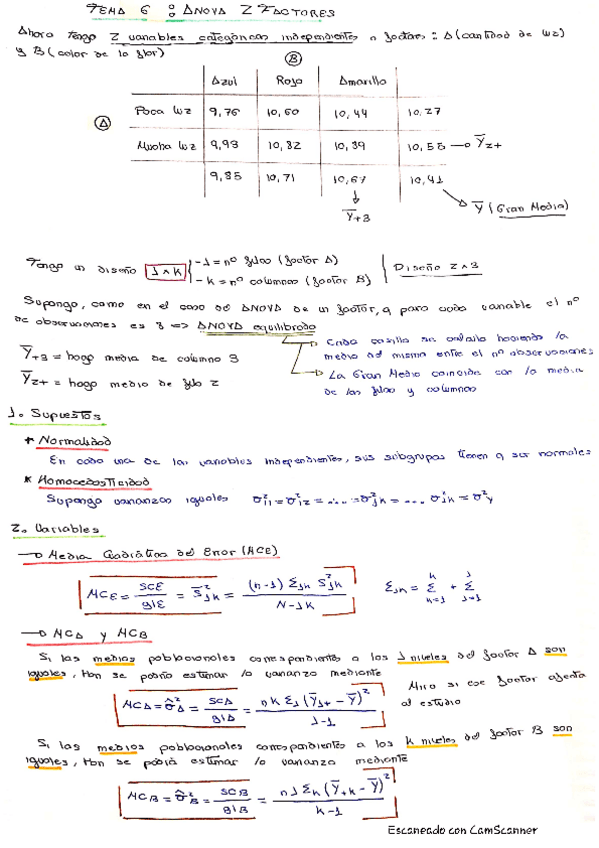 TEMA 6 : ANOVA 2 FACTORES
Ahora tengo 2 variables categóricas independientes o factores : A (cantidad de luz)
y B (color de la flor)
B
Azul Rojo Amarillo
A
Poca luz 9,76 10,60 10,44 10,27
Mucha luz 9,93 10,82 10,89 10,55 → Ȳ2+
9,85 10,71 10,67 10,41
Ȳ+3
Ȳ (Gran Media)
Tengo un diseño J x K
- J = nº filas (factor A)
- K = nº columnas (factor B)
Diseño 2 x 3
Supongo, como en el caso del ANOVA de un factor, q para cada variable el nº
de observaciones es 8 => ANOVA equilibrado
Cada casilla se calcula haciendo la
media del mismo entre el nº observaciones
La Gran Media coincide con la media
de las filas y columnas
Ȳ+3 = hago media de columna 3
Ȳ2+ = hago media de fila 2
1. Supuestos
* Normalidad
En cada una de las variables independientes, sus subgrupos tienen q ser normales
* Homocedasticidad
Supongo varianzas iguales σ²11 = σ²12 = ... = σ²jk = ... σ²JK = σ²Y
2. Variables
→ Media Cuadrática del Error (MCE)
MCE = SCE / glE = S̄²jk = (n-1) Σjk S²jk / N-JK
Σjk = Σ + Σ
→ MCA y MCB
Si las medias poblacionales correspondientes a los J niveles del factor A son
iguales, tbn se podría estimar la varianza mediante
MCA = σ̂²A = SCA / glA = nK Σj (Ȳj+ - Ȳ)² / J-1
Miro si ese factor afecta
al estudio
Si las medias poblacionales correspondientes a los K niveles del factor B son
iguales, tbn se podrá estimar la varianza mediante
MCB = σ̂²B = SCB / glB = nJ Σk (Ȳ+k - Ȳ)² / K-1
Escaneado con CamScanner